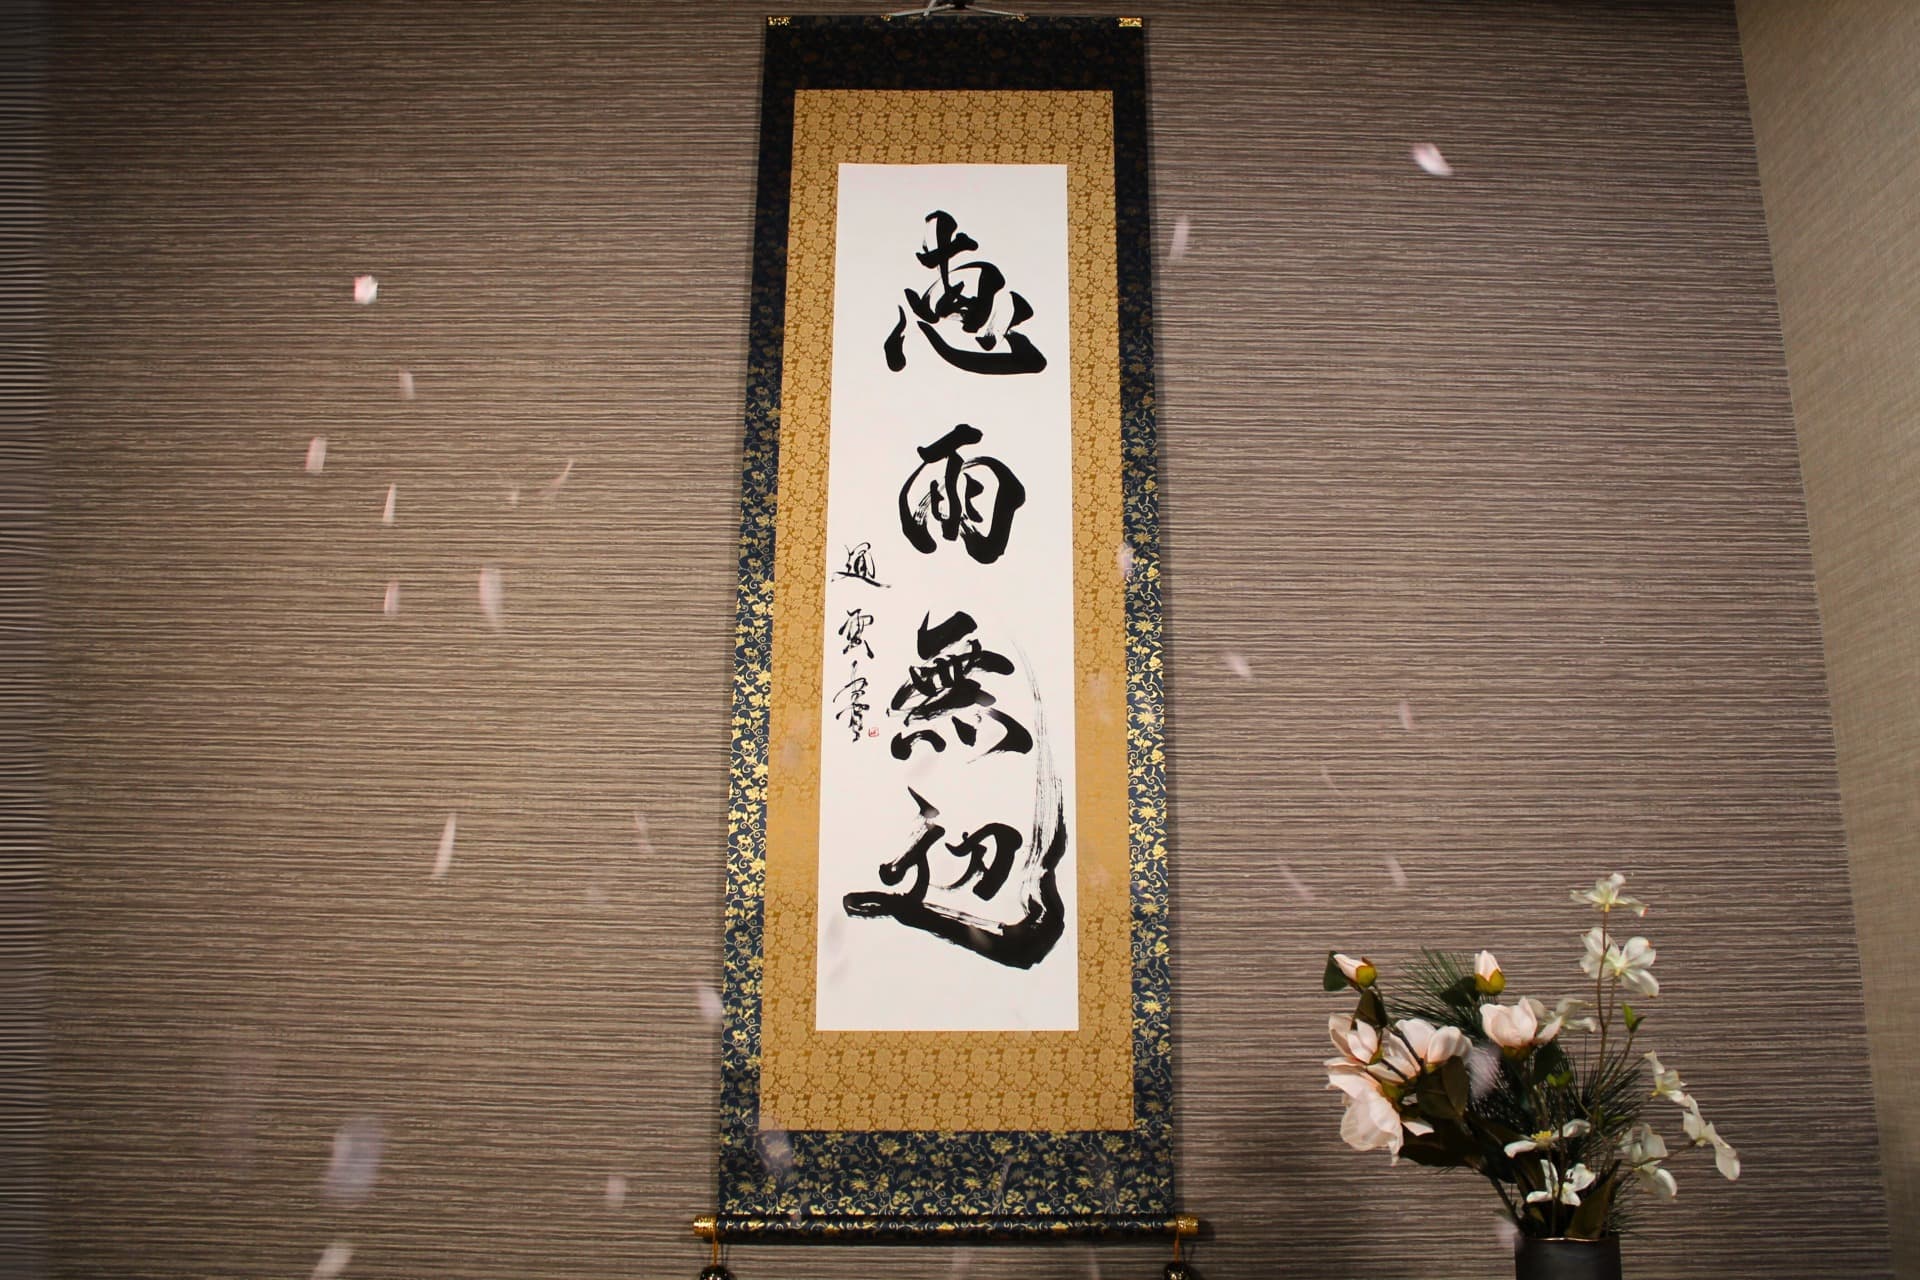 恵雨無辺
道雲書